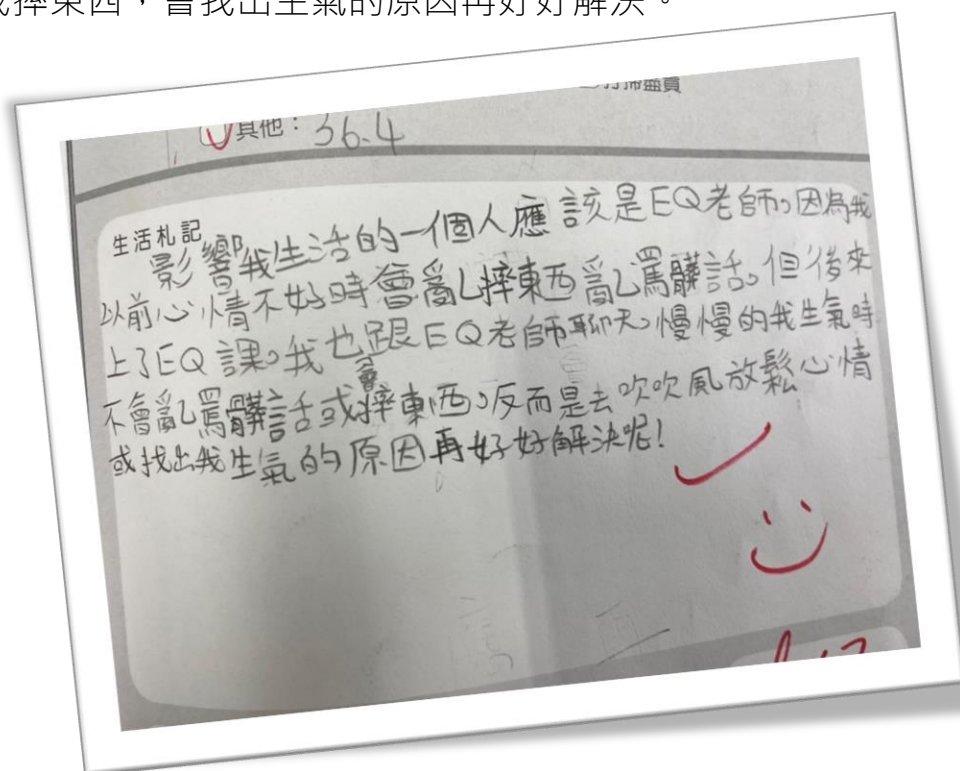 或摔東西，會找出生氣的原因再好好解決。
其他：36.4
生活札記
影響我生活的一個人應該是EQ老師。因為我
以前心情不好時會亂摔東西亂罵髒話。但後來
上了EQ課。我也跟EQ老師聊天。慢慢的我生氣時
不會亂罵髒話或會摔東西。反而是去吹吹風放鬆心情
或找出我生氣的原因再好好解決呢！